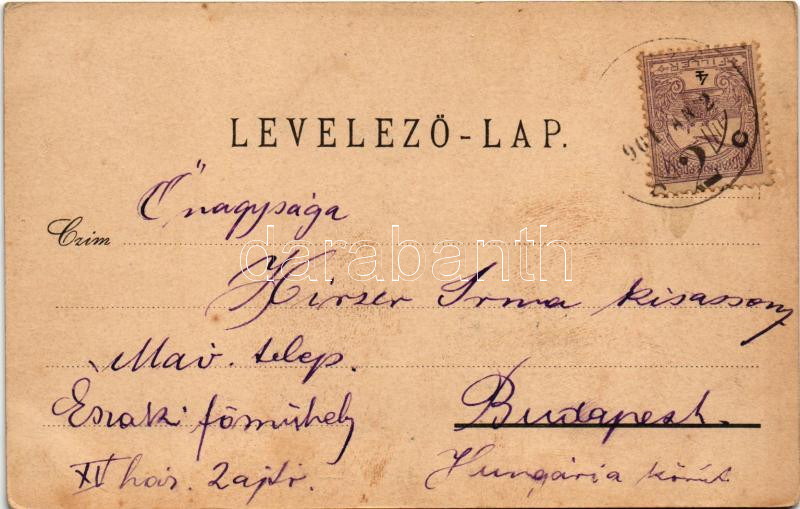 LEVELEZŐ-LAP.
FILLÉR
4
Czim
Őnagysága
darabanth
Hirser Irma kisasszony
Máv. telep.
Északi főműhely
Budapest.
XI ház. 2 ajtó.
Hungária körút